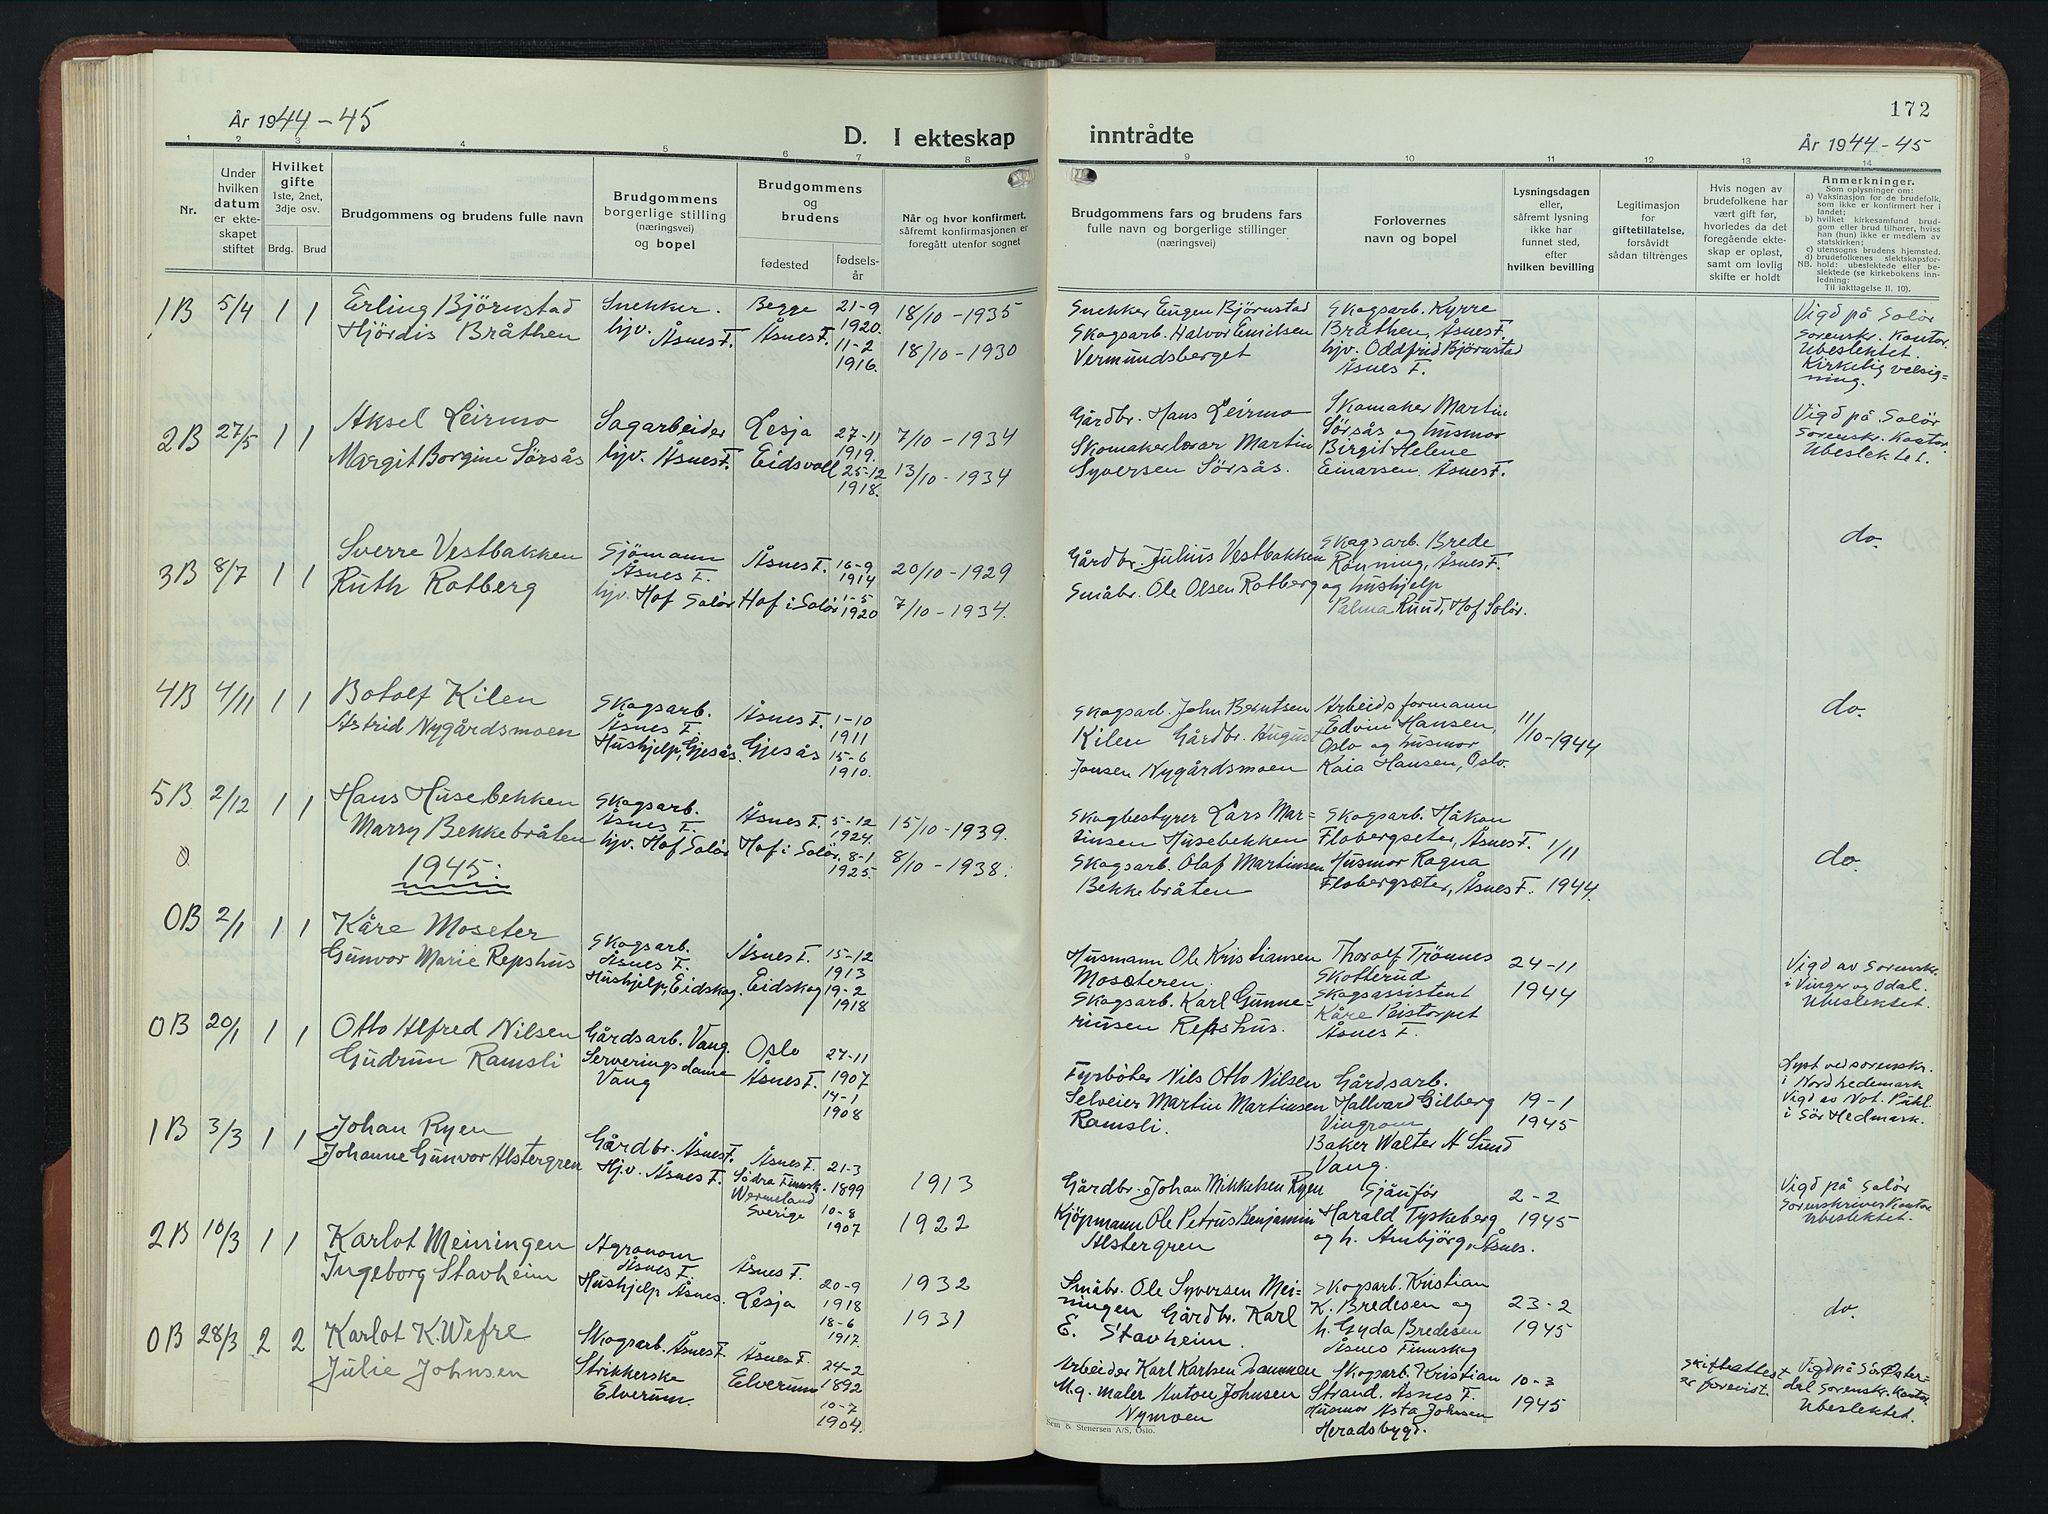 172
År 1944-45
D. I ekteskap inntrådte
År 1944-45
1 2 3 4 5 6 7 8 9 10 11 12 13 14
Nr.
Under hvilken datum er ekteskapet stiftet
Hvilket gifte
1ste, 2net, 3dje osv.
Brdg. Brud
Brudgommens og brudens fulle navn
Brudgommens borgerlige stilling (næringsvei) og bopel
Brudgommens og brudens
fødested
fødselsår
Når og hvor konfirmert, såfremt konfirmasjonen er foregått utenfor sognet
Brudgommens fars og brudens fars fulle navn og borgerlige stillinger (næringsvei)
Forlovernes navn og bopel
Lysningsdagen eller, såfremt lysning ikke har funnet sted, efter hvilken bevilling
Legitimasjon for giftetillatelse, forsåvidt sådan tiltrenges
Hvis nogen av brudefolkene har vært gift før, hvorledes da det foregående ekteskap er opløst, samt om lovlig skifte er holdt
Anmerkninger.
Som oplysninger om:
a) Vaksinasjon for de brudefolk, som ikke er konfirmert her i landet;
b) hvilket kirkesamfund brudgom eller brud tilhører, hviss han (hun) ikke er medlem av statskirken;
c) utensogns brudens hjemsted.
d) brudefolkenes slektskapsforhold: ubeslektede eller beslektede (se kirkebokens innledning:
NB.
Til iakttagelse II. 10).
1B 5/4 1 1 Erling Björnstad Snekker. Begge 21-9 1920. 18/10-1935 Snekker Eugen Björnstad Skogsarb. Kyrre Vigd på Solör
Hjördis Bråthen hjv. Åsnes F. Åsnes F. 11-2 1916. 18/10-1930 Skogsarb. Halvor Emilsen Bråthen, Åsnes F. Sorenskr. Kontor.
Vermundsberget hjv. Oddfrid Björnstad Ubeslektet.
Åsnes F. Kirkelig velsigning.
2B 27/5 1 1 Aksel Leirmo Sagarbeider Lesja 27-11 1919. 7/10-1934 Gårdbr. Hans Leirmo Skomaker Martin Vigd på Solör
Margit Borgine Sörsås hjv. Åsnes F. Eidsvoll 25-12 1918. 13/10-1934 Skomakerlærar Martin Sörsås og husmor Sorenskr. Kontor
Syversen Sörsås. Birgit Helene Ubeslektet.
Einarsen. Åsnes F.
3B 8/7 1 1 Sverre Vestbakken Sjömann Åsnes F. Åsnes F. 16-9 1914 20/10-1929 Gårdbr. Julius Vestbakken Skogsarb. Brede do.
Ruth Rotberg hjv. Hof Solör Hof i Solör 1-5 1920 7/10-1934. Småbr. Ole Olsen Rotberg Rönning, Åsnes F.
og hushjelp
Palma Ruud, Hof Solör.
4B 4/11 1 1 Botolf Kilen Skogsarb. Åsnes F. Åsnes F. 1-10 1911 Skogsarb. John Berntsen Arbeidsformann 11/10-1944 do.
Astrid Nygårdsmoen Hushjelp, Gjesås. Gjesås 15-6 1910. Kilen Gårdbr. August Edvin Hansen,
Jonsen Nygårdsmoen Oslo og husmor
Kaia Hansen, Oslo.
5B 2/12 1 1 Hans Husebekken Skogsarb. Åsnes F. Åsnes F. 5-12 1924. 15/10-1939. Skogbestyrer Lars Mar- Skogsarb. Håkon 1/11 1944. do.
Marry Bekkebråten hjv. Hof Solör Hof i Solör. 8-1 1925. 8/10-1938. tinsen Husebekken Flobergseter, Åsnes F.
0 1945: Skogsarb. Olaf Martinsen Husmor Ragna
Bekkebråten Flobergsæter, Åsnes F.
0B 2/1 1 1 Kåre Moseter Skogsarb. Åsnes F. Åsnes F. 15-12 1913 Husmann Ole Kristiansen Thorolf Trönnes 24-11 1944 Vigd av Sorenskr.
Gunvor Marie Repshus Hushjelp, Eidskog. Eidskog 19-2 1918 Mosæteren. Skotterud i Vinger og Odal.
Skogsarb. Karl Gunne- Skogsassistent Ubeslektet.
riusen Repshus. Kåre
Åsnes F.
0B 20/1 1 1 Otto Alfred Nilsen Gårdsarb. Vang. Oslo 27-11 1907 Fyrböter Nils Otto Nilsen Gårdsarb. 19-1 1945 Lyst ved sorenskr.
Gudrun Ramsli Serveringsdame Vang Åsnes F. 14-1 1908 Selveier Martin Martinsen Hallvard Gilberg i Nord hedemark
Ramsli. Vingrom Vigd av Not. Publ.
Baker Walter A Sund i Sör Hedmark.
Vang.
1B 3/3 1 1 Johan Ryen Gårdbr. Åsnes F. Åsnes F. 21-3 1899 1913 Gårdbr. Johan Mikkelsen Ryen Sjåuför 2-2 1945 Vigd på Solör
Johanne Gunvor Alstergren Hjv. Åsnes F. Södra Finnsk. Wermeland Sverige 10-8 1907 1922 Kjöpmann Ole Petrus Benjamin Harald Tyskeberg Sorenskriver Kontor
Alstergren og h. Ambjörg, Åsnes. Ubeslektet.
2B 10/3 1 1 Karlot Meiningen Agronom Åsnes F. Åsnes F. 20-9 1918 1932 Småbr. Ole Syversen Mei- Skogsarb. Kristian 23-2 1945 do.
Ingeborg Stavheim Hushjelp Åsnes. Lesja 18-6 1917. 1931 ningen Gårdbr. Karl K. Bredesen og
E. Stavheim. h. Gyda Bredesen
Åsnes Finnskog
0B 28/3 2 2 Karlot K. Wefre Skogsarb. Åsnes F. Åsnes F. 24-2 1892 Arbeider Karl Karlsen Skogsarb. Kristian 10-3 1945 Skifteattest er forevist. Vigd på Sör Öster-
Julie Johnsen Strikkerske Elverum. Elverum 10-7 1904. M.g. maler Anton Johnsen Strand. Åsnes F. dal Sorenskr. kontor
Nymoen Husmor Asta Johnsen Ubeslektet.
Heradsbygd.
Sem & Stenersen A/S, Oslo.